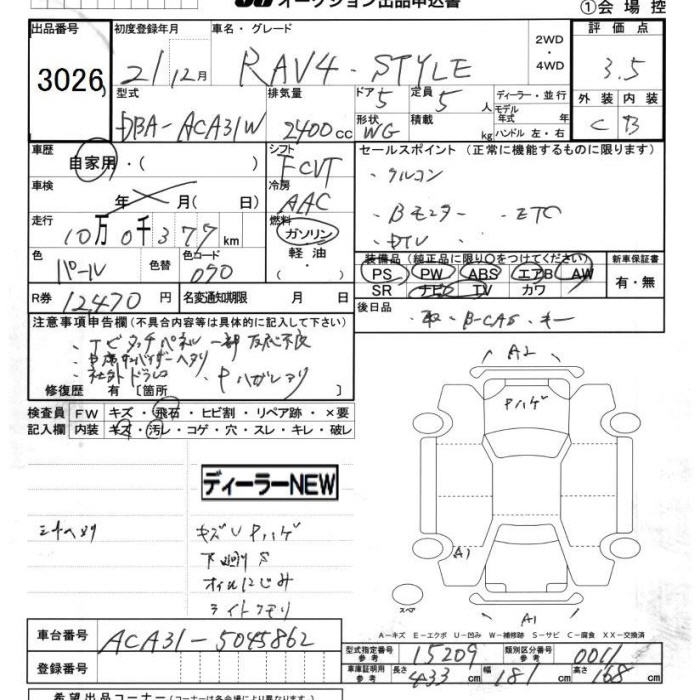 オークション出品申込書 ①会場控
出品番号 初度登録年月 車名・グレード 2WD・4WD 評価点
3026 21/12月 RAV4・STYLE 3.5
型式 排気量 ドア 5 定員 5人 ディーラー・並行 外装 内装
DBA-ACA31W 2400cc 形状 WG 積載 kg モデル年式 年 ハンドル 左・右 C B
車歴 シフト セールスポイント（正常に機能するものに限ります）
自家用・( ) FCVT
車検 冷房 ・Bモニター ・ETC
年 月( 日) AAC ・DTV
走行 燃料
10万0千377km ガソリン
色 色替 色コード 軽油 装備品（純正品に限り○をつけてください） 新車保証書
パール 070 ・( ) PS PW ABS エアB AW 有・無
SR ナビ TV カワ
R券 12470円 名変通知期限 月 日 後日品
注意事項申告欄（不具合内容等は具体的に記入して下さい） ・取・B-CAS・キー
・TVタッチパネル一部反応不良
・社外ドラレコ ・Pハガレアリ
修復歴 有〔箇所
検査員 FW キズ・飛石・ヒビ割・リペア跡・×要
記入欄 内装 キズ・汚レ・コゲ・穴・スレ・キレ・破レ
A2
Pハゲ
ディーラーNEW
シートヘタリ キズU Pハゲ
下廻りS
オイルにじみ
ライトクモリ
A1
スペア
A1
A-キズ E-エクボ U-凹み W-補修跡 S-サビ C-腐食 XX-交換済
車台番号 ACA31-5045862
型式指定番号 参考 15209 類別区分番号 参考 0011
登録番号 車庫証明用 参考 長さ 433cm 幅 181cm 高さ 168cm
希望出品コーナー（コーナーは各会場により異なります）